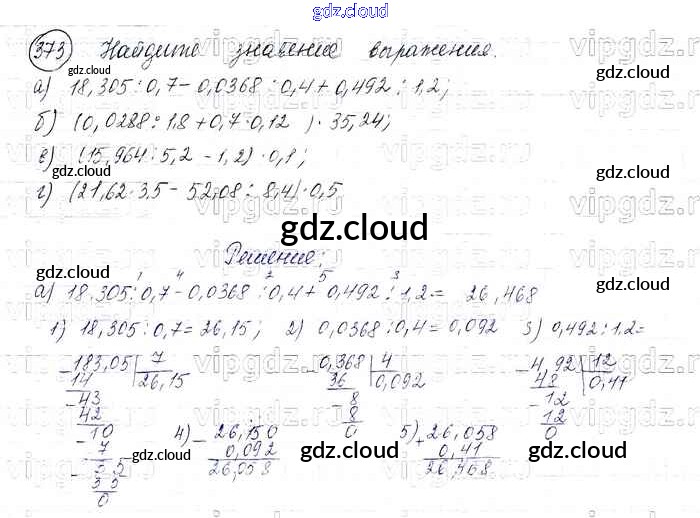 gdz.cloud
373 Найдите значение выражения.
а) 18,305 : 0,7 - 0,0368 : 0,4 + 0,492 : 1,2;
б) (0,0288 : 1,8 + 0,7 · 0,12) · 35,24;
в) (15,964 : 5,2 - 1,2) · 0,1;
г) (21,62 · 3,5 - 52,08 : 8,4) · 0,5
gdz.cloud
Решение:
1 4 2 5 3
а) 18.305 : 0,7 - 0,0368 : 0,4 + 0,492 : 1,2 = 26,468
1) 18,305 : 0,7 = 26,15; 2) 0,0368 : 0,4 = 0,092 3) 0,492 : 1,2 =
- 183,05 | 7 - 0,368 | 4 - 4,92 | 12
14 26,15 36 0,092 48 0,41
- 43 - 8 - 12
42 8 12
- 10 0 0
7 4) - 26,150 5) + 26,058
- 3 5 0,092 0,41
3 5 26,058 26,468
0
gdz.cloud
vipgdz